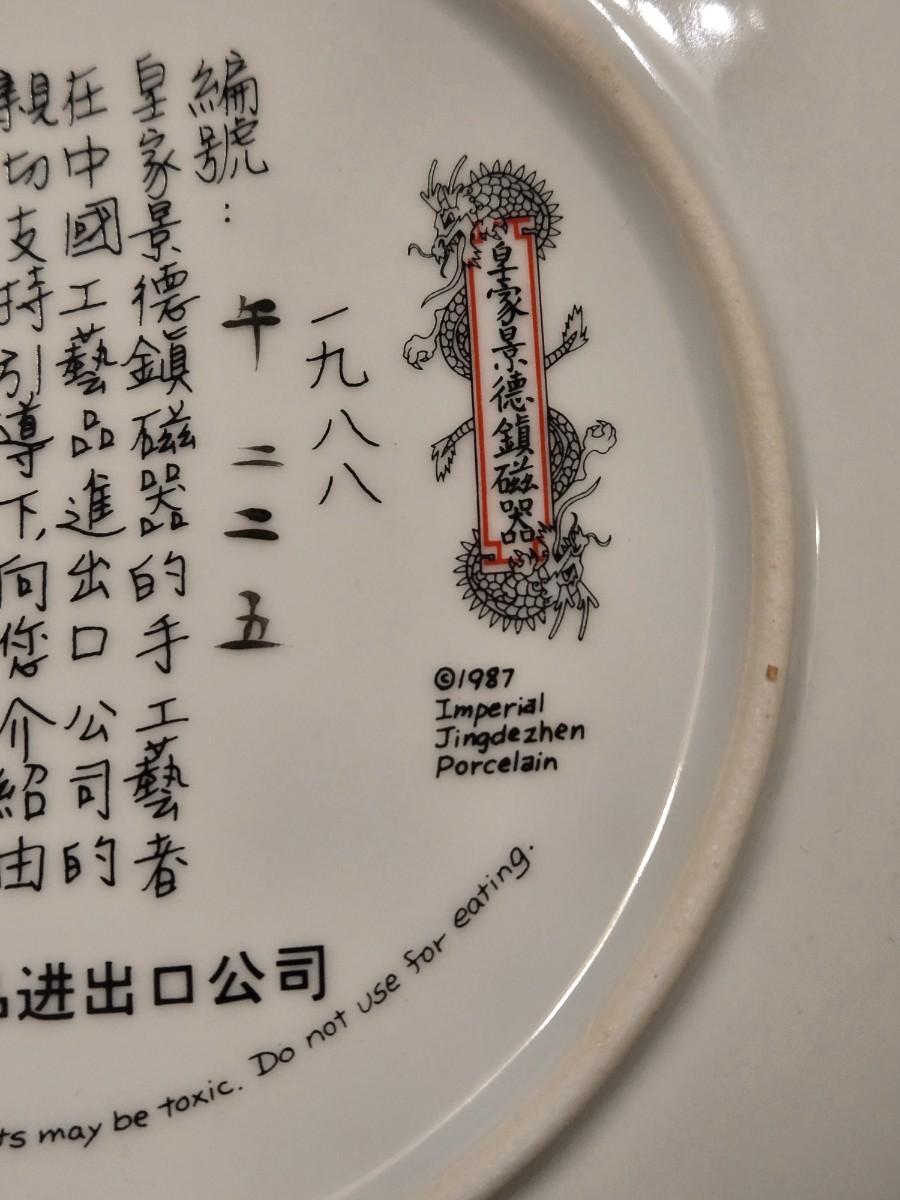 皇家景德鎮磁器
©1987
Imperial
Jingdezhen
Porcelain
一九八八
編號：
午二二五
皇家景德鎮磁器的手工藝者
在中國工藝品進出口公司的
親切支持引導下,向您介紹由
进出口公司
may be toxic. Do not use for eating.